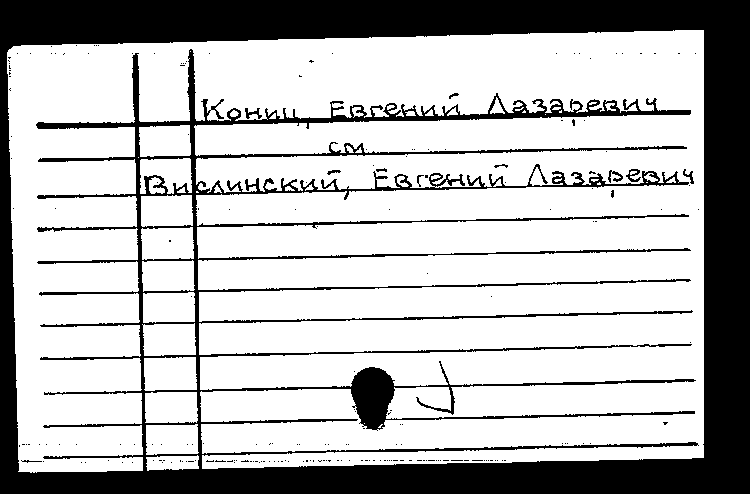 Кониц, Евгений Лазаревич
см
Вислинский, Евгений Лазаревич